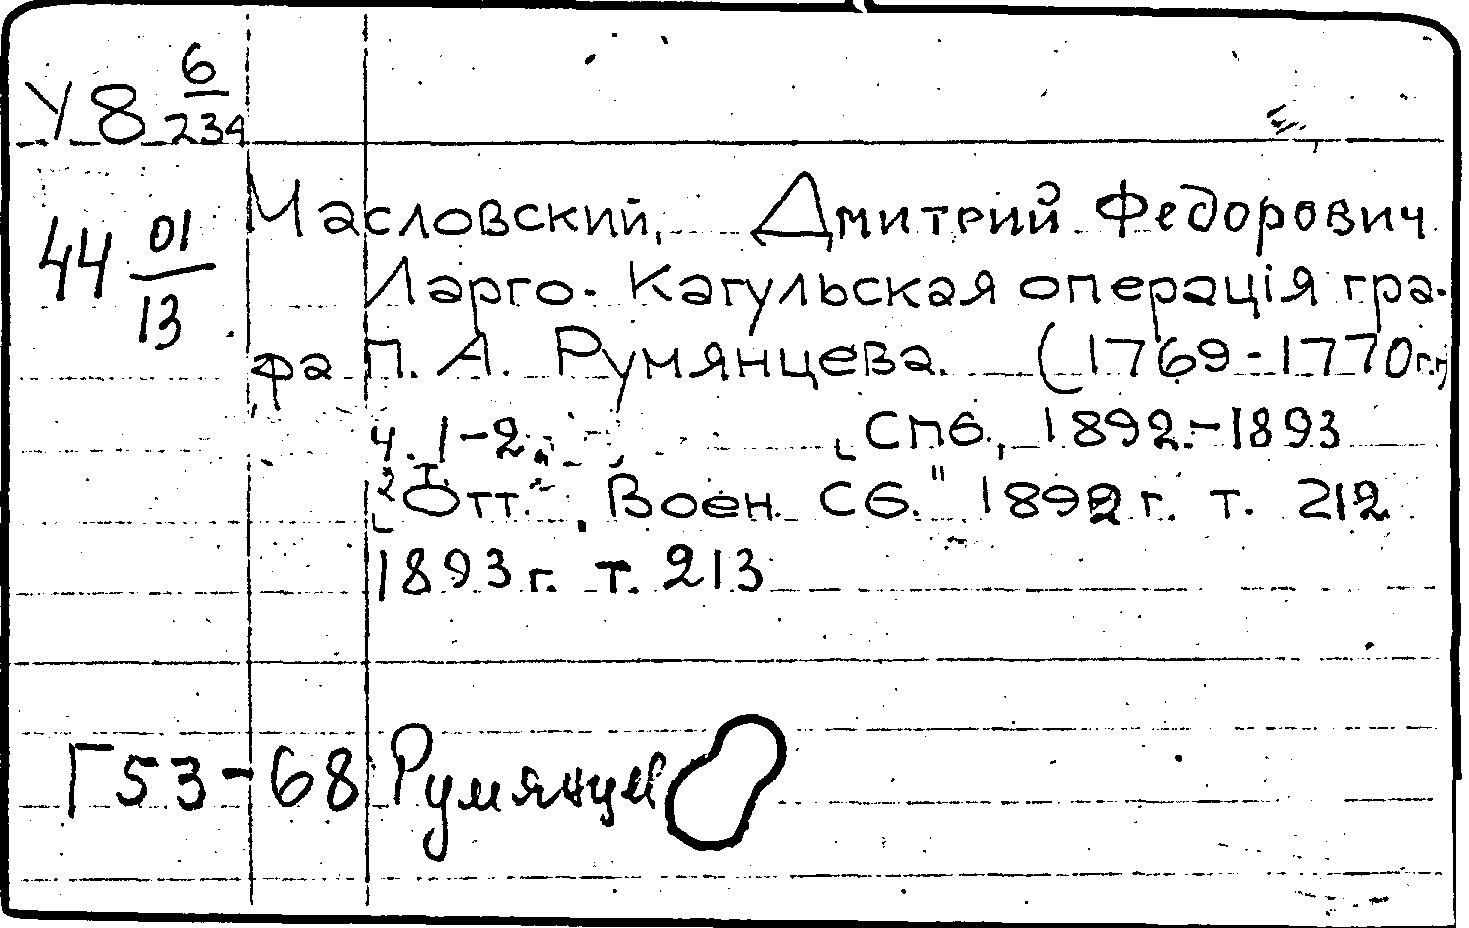 У8 6/234
44 01/13
Масловский, Дмитрий Федорович
Ларго-Кагульская операція гра-
фа П. А. Румянцева. (1769-1770г.г)
ч. 1-2. Спб., 1892.-1893
Отт. „Воен. Сб." 1892 г. т. 212
1893 г. т. 213
Г53-68 Румянцев